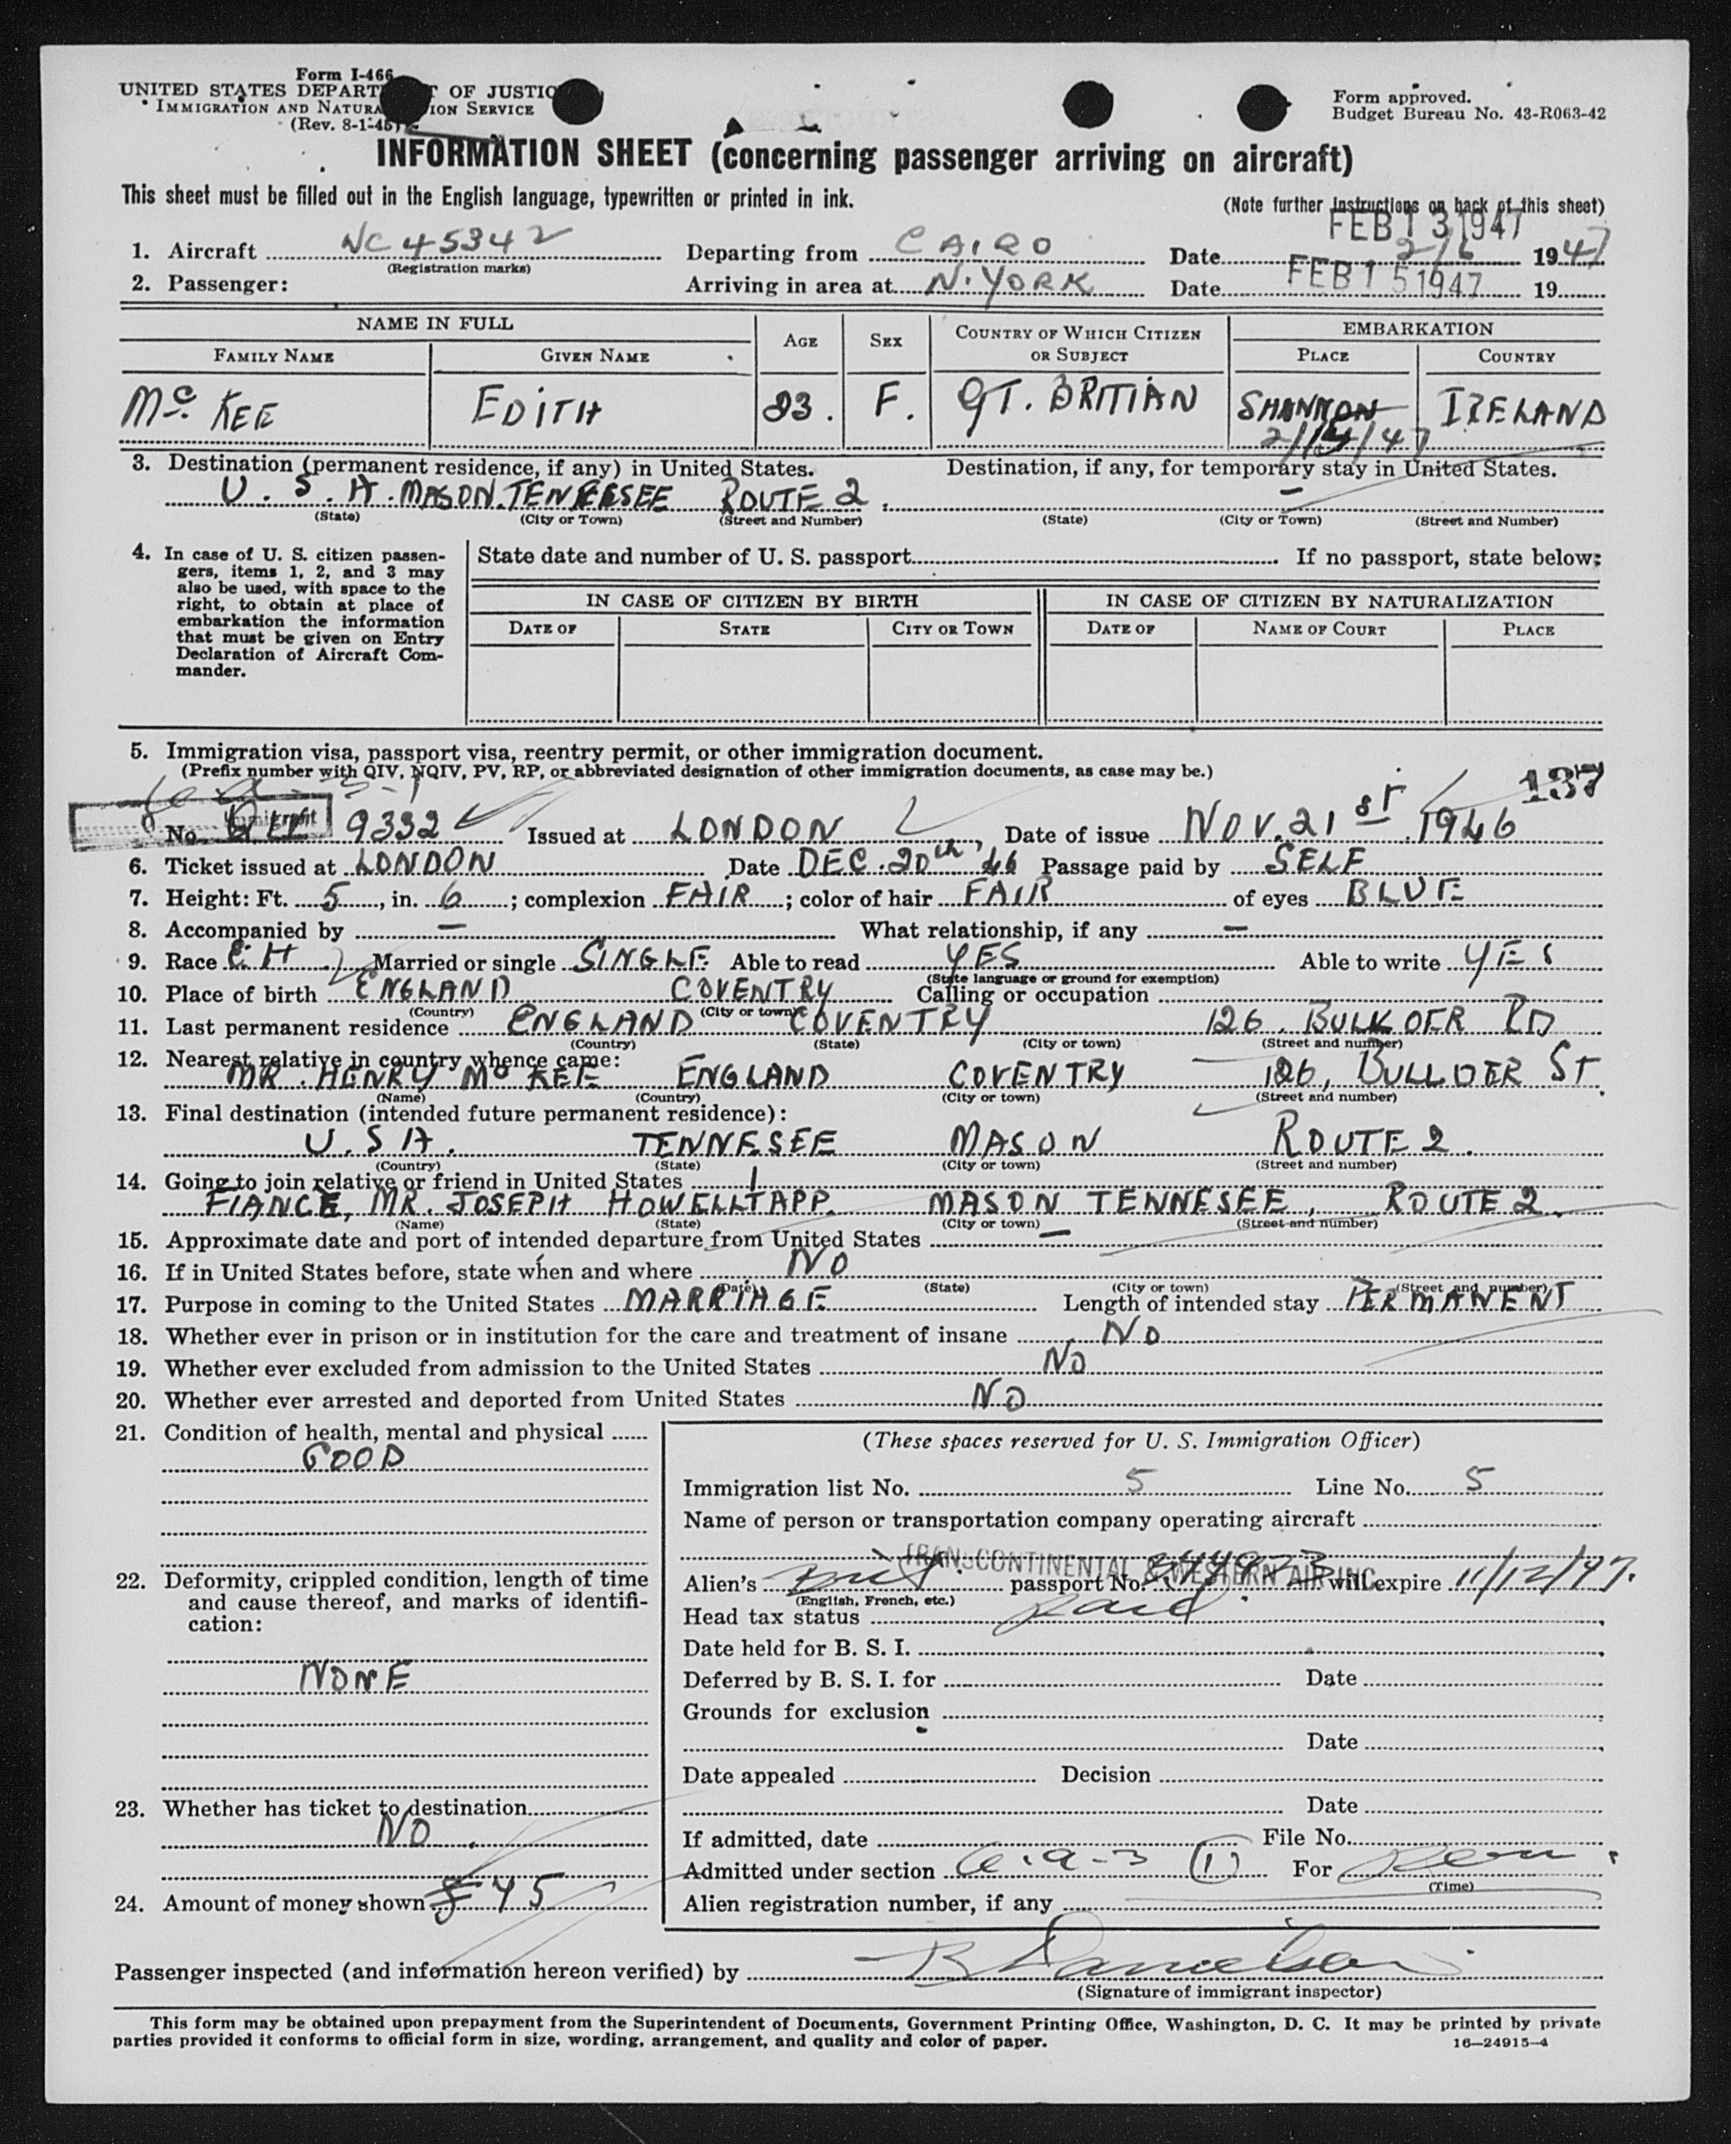 Form I-466
UNITED STATES DEPART OF JUSTIC
IMMIGRATION AND NATURA ION SERVICE
(Rev. 8-1-45)
Form approved.
Budget Bureau No. 43-R063-42
INFORMATION SHEET (concerning passenger arriving on aircraft)
This sheet must be filled out in the English language, typewritten or printed in ink.
(Note further instructions on back of this sheet)
FEB 13 1947
1. Aircraft NC 45342 Departing from CAIRO Date 2/6 1947
(Registration marks)
2. Passenger: Arriving in area at N. YORK Date FEB 15 1947 19
NAME IN FULL AGE SEX COUNTRY OF WHICH CITIZEN OR SUBJECT EMBARKATION
FAMILY NAME GIVEN NAME PLACE COUNTRY
Mc KEE EDITH 23. F. GT. BRITIAN SHANNON IRELAND
2/15/47
3. Destination (permanent residence, if any) in United States. Destination, if any, for temporary stay in United States.
U. S. A. MASON. TENNESSEE ROUTE 2. —
(State) (City or Town) (Street and Number) (State) (City or Town) (Street and Number)
4. In case of U. S. citizen passengers, items 1, 2, and 3 may also be used, with space to the right, to obtain at place of embarkation the information that must be given on Entry Declaration of Aircraft Commander.
State date and number of U. S. passport If no passport, state below:
IN CASE OF CITIZEN BY BIRTH IN CASE OF CITIZEN BY NATURALIZATION
DATE OF STATE CITY OR TOWN DATE OF NAME OF COURT PLACE
5. Immigration visa, passport visa, reentry permit, or other immigration document.
(Prefix number with QIV, NQIV, PV, RP, or abbreviated designation of other immigration documents, as case may be.)
137
No. 9332 Issued at LONDON Date of issue NOV. 21st 1946
6. Ticket issued at LONDON Date DEC. 20th, 46 Passage paid by SELF
7. Height: Ft. 5, in. 6; complexion FAIR; color of hair FAIR of eyes BLUE
8. Accompanied by — What relationship, if any —
9. Race Married or single SINGLE Able to read YES Able to write YES
(State language or ground for exemption)
10. Place of birth ENGLAND COVENTRY Calling or occupation
(Country) (City or town)
11. Last permanent residence ENGLAND COVENTRY 126, RD
(Country) (State) (City or town) (Street and number)
12. Nearest relative in country whence came:
MR. HENRY Mc KEE ENGLAND COVENTRY 126, ST.
(Name) (Country) (City or town) (Street and number)
13. Final destination (intended future permanent residence):
U. S A. TENNESEE MASON ROUTE 2.
(Country) (State) (City or town) (Street and number)
14. Going to join relative or friend in United States
FIANCE, MR. JOSEPH HOWELL TAPP. MASON TENNESEE, ROUTE 2.
(Name) (State) (City or town) (Street and number)
15. Approximate date and port of intended departure from United States —
16. If in United States before, state when and where NO
(Date) (State) (City or town) (Street and number)
17. Purpose in coming to the United States MARRIAGE Length of intended stay PERMANENT
18. Whether ever in prison or in institution for the care and treatment of insane NO
19. Whether ever excluded from admission to the United States NO
20. Whether ever arrested and deported from United States NO
21. Condition of health, mental and physical
GOOD
22. Deformity, crippled condition, length of time and cause thereof, and marks of identification:
NONE
23. Whether has ticket to destination
NO.
24. Amount of money shown 45
(These spaces reserved for U. S. Immigration Officer)
Immigration list No. 5 Line No. 5
Name of person or transportation company operating aircraft
TRANSCONTINENTAL & WESTERN AIR INC.
Alien's Brit. passport No. will expire 11/12/47.
(English, French, etc.)
Head tax status Paid.
Date held for B. S. I.
Deferred by B. S. I. for Date
Grounds for exclusion
Date
Date appealed Decision
Date
If admitted, date File No.
Admitted under section (1) For
(Time)
Alien registration number, if any
Passenger inspected (and information hereon verified) by B Danielson
(Signature of immigrant inspector)
This form may be obtained upon prepayment from the Superintendent of Documents, Government Printing Office, Washington, D. C. It may be printed by private
parties provided it conforms to official form in size, wording, arrangement, and quality and color of paper.
16—24915-4